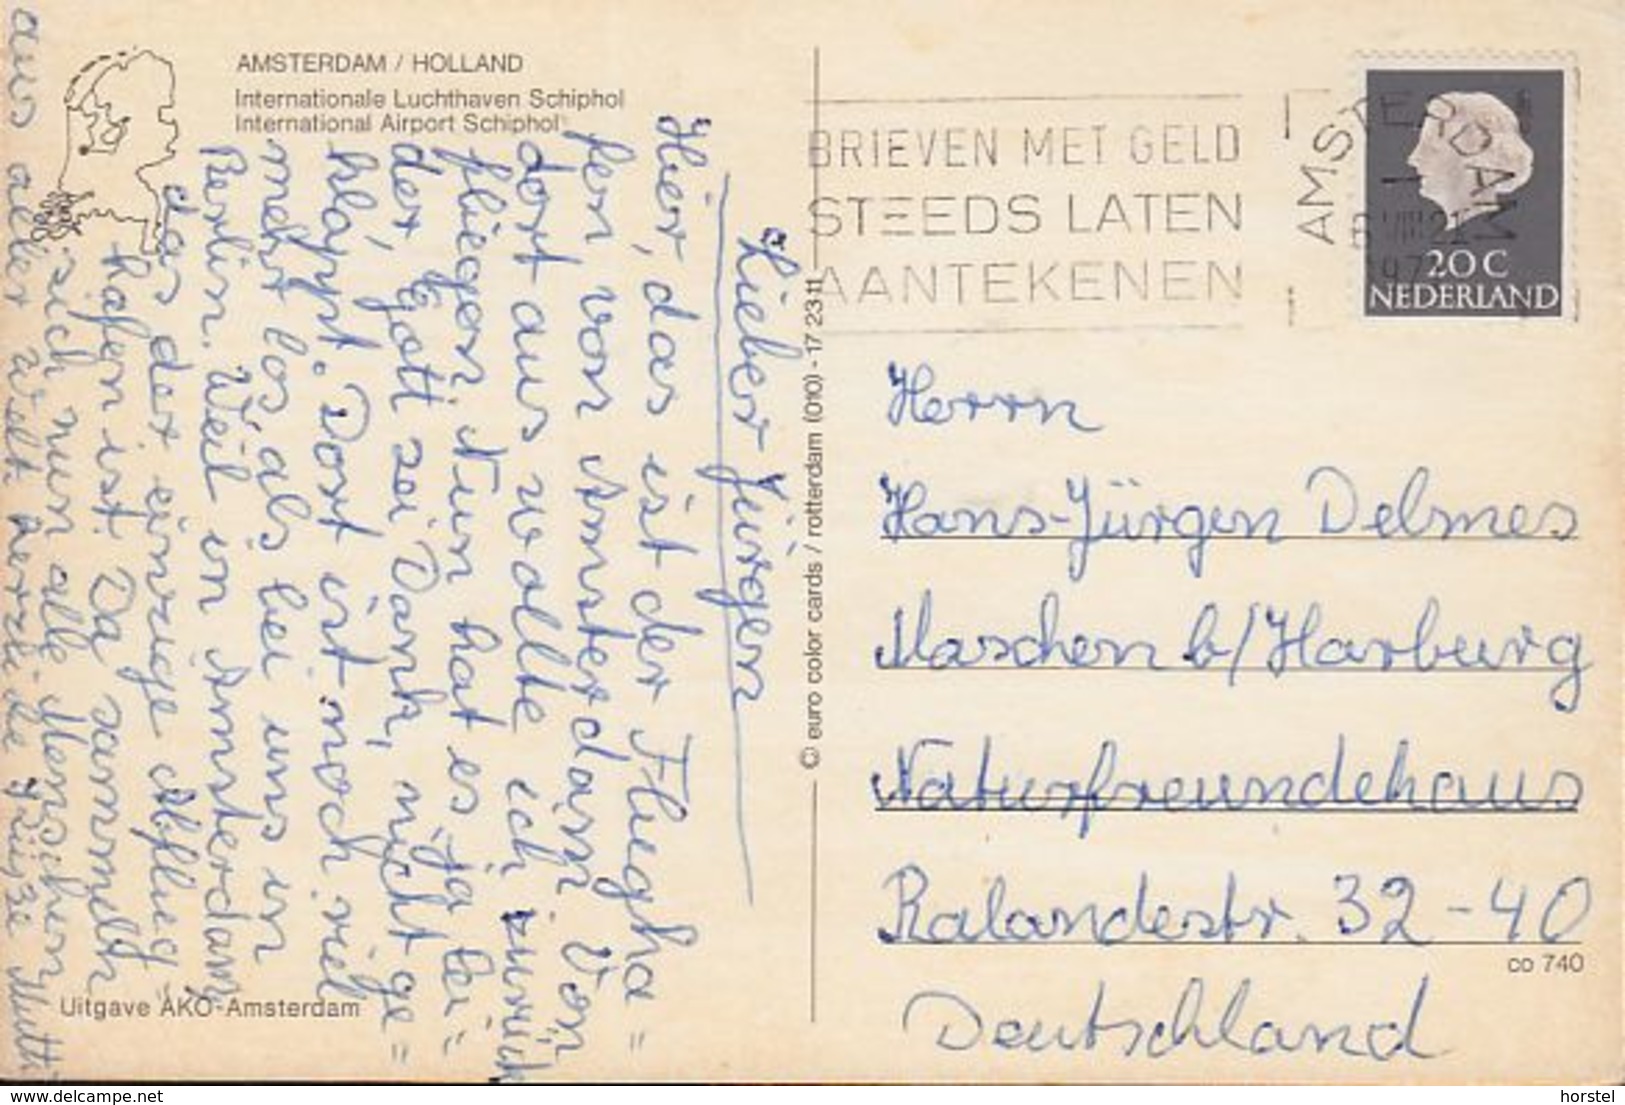 AMSTERDAM / HOLLAND
Internationale Luchthaven Schiphol
International Airport Schiphol
Lieber Jürgen
Hier, das ist der Flugha=
fen von Amsterdam. Von
dort aus wollte ich zurück
fliegen. Nun hat es ja lei=
der, Gott sei Dank, nicht ge=
klappt. Dort ist noch viel
mehr los, als bei uns in
Berlin. Weil in Amsterdam
das der einzige Abflug
hafen ist. Da sammelt
sich nun alle Menschen
aus aller Welt herzliche Grüße Mutti
Uitgave AKO-Amsterdam
© euro color cards / rotterdam (010) - 17 23 11
BRIEVEN MET GELD
STEEDS LATEN
AANTEKENEN
AMSTERDAM
20 C
NEDERLAND
Herrn
Hans-Jürgen Delmes
Maschen b/Harburg
Naturfreundehaus
Ralandestr. 32-40
Deutschland
co 740
www.delcampe.net
horstel